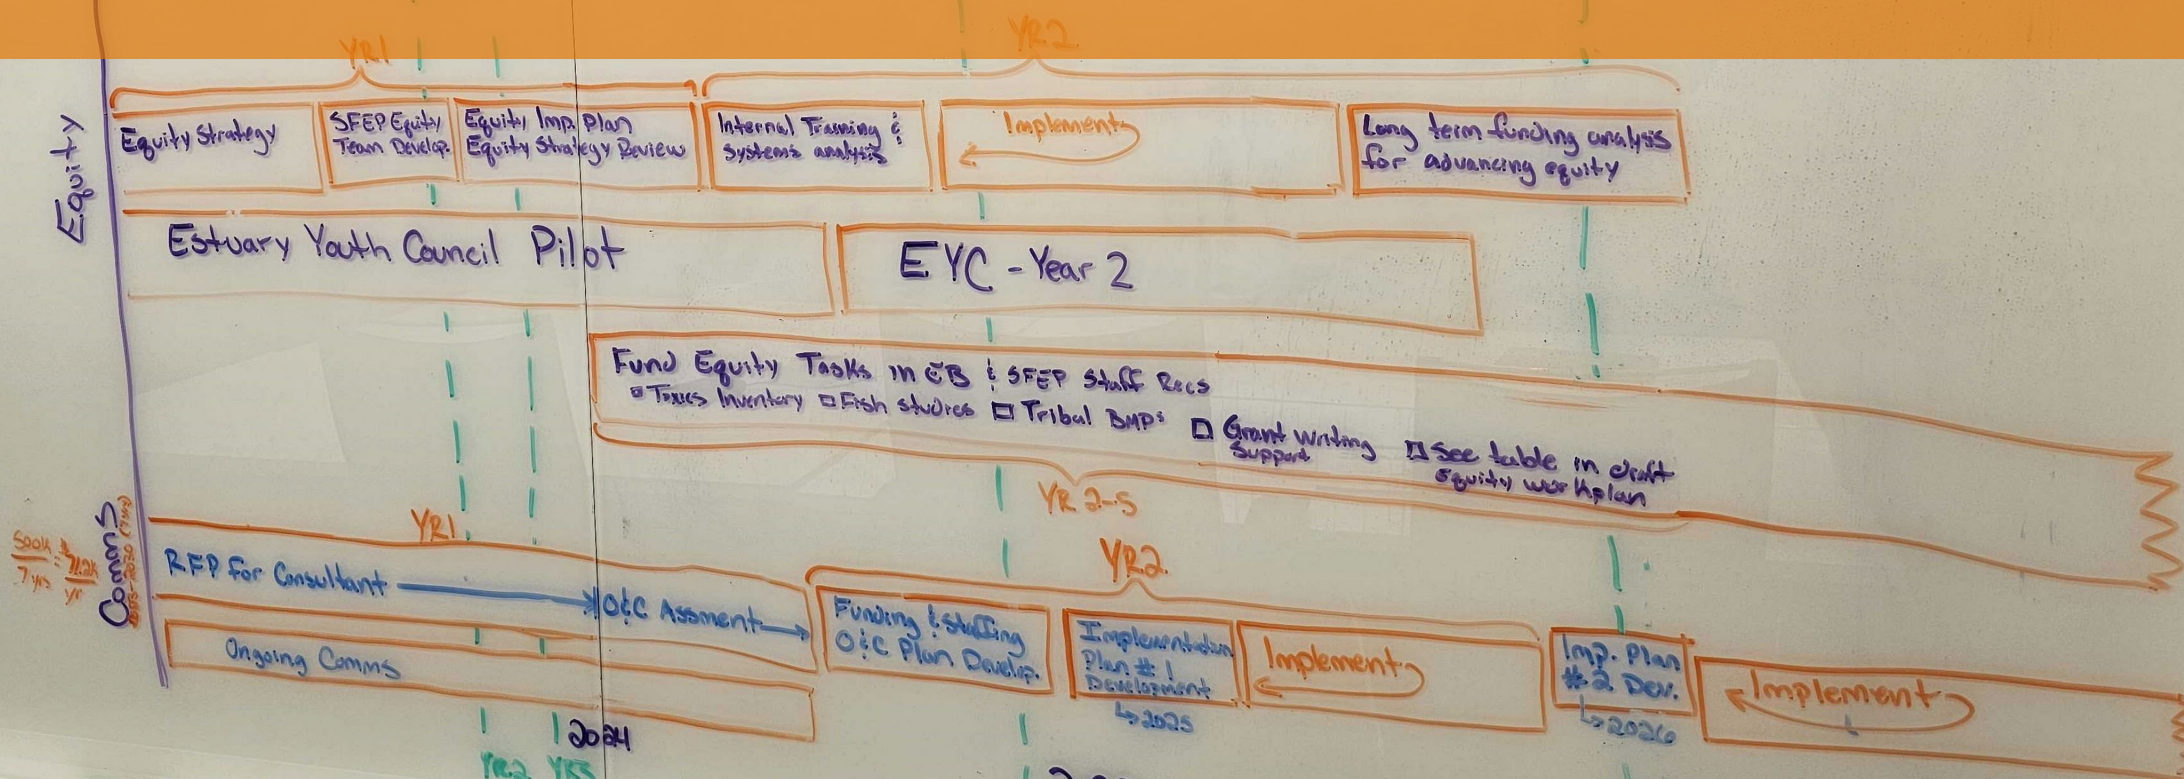 YR1
YR2
Equity
Equity Strategy
SFEP Equity
Team Develop.
Equity Imp. Plan
Equity Strategy Review
Internal Training &
Systems analysis
Implement
Long term funding analysis
for advancing equity
Estuary Youth Council Pilot
EYC - Year 2
Fund Equity Tasks in EB & SFEP Staff Recs
Toxics Inventory
Fish studies
Tribal BMPs
Grant Writing
Support
See table in draft
Equity workplan
YR 2-5
Comms
500K
7 yrs
YR1
YR2
RFP for Consultant
O&C Assment
Funding & Staffing
O&C Plan Develop.
Implementation
Plan #1
Development
↳2025
Implement
Imp. Plan
#2 Dev.
↳2026
Implement
Ongoing Comms
2024
YR2
YR3